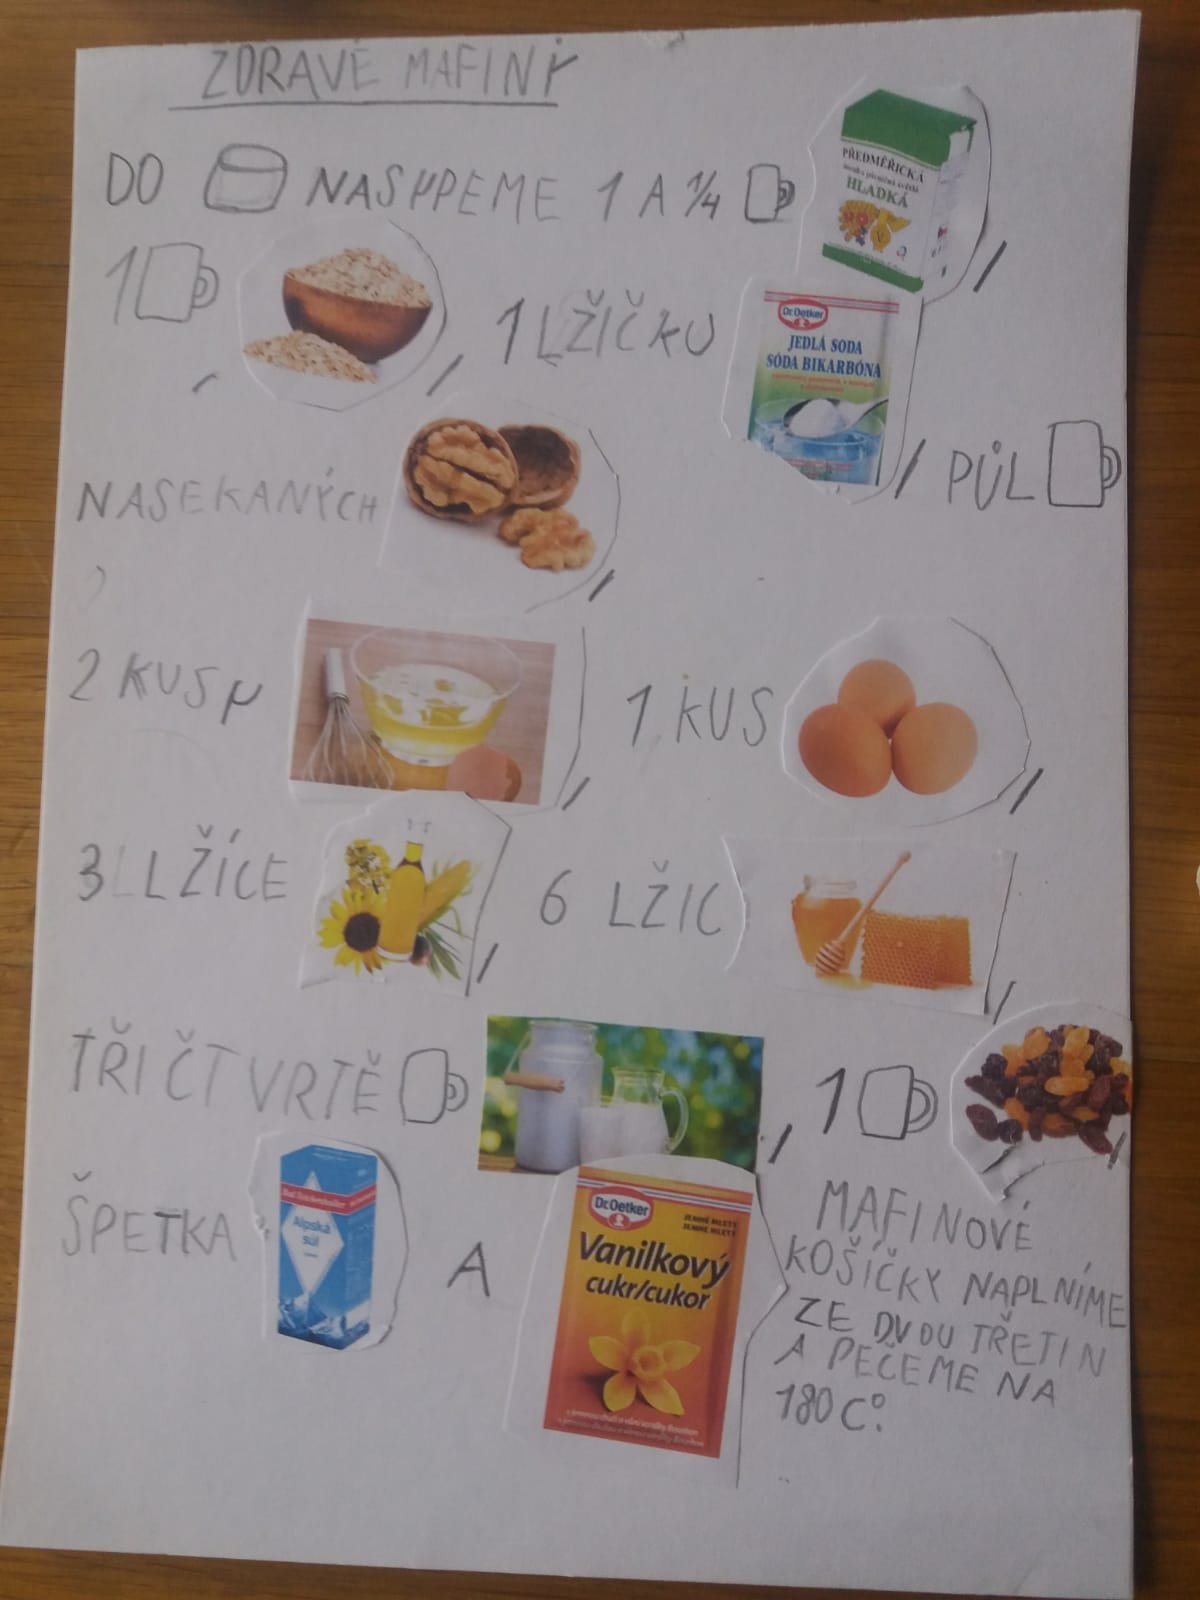 ZDRAVÉ MAFINY
DO NASYPEME 1 A 1/4
PŘEDMĚŘICKÁ
mouka pšeničná světlá
HLADKÁ
1 , 1 LŽIČKU
Dr.Oetker
JEDLÁ SODA
SÓDA BIKARBÓNA
, PŮL
NASEKANÝCH ,
2 KUSY , 1 KUS ,
3 LŽÍCE , 6 LŽIC ,
TŘI ČTVRTĚ , 1 ,
ŠPETKA
Bad Reichenhaller
Alpská
sůl
A
Dr.Oetker
JEMNĚ MLETÝ
JEMNE MLETÝ
Vanilkový
cukr/cukor
MAFINOVÉ
KOŠÍČKY NAPLNÍME
ZE DVOU TŘETIN
A PEČEME NA
180 C°.